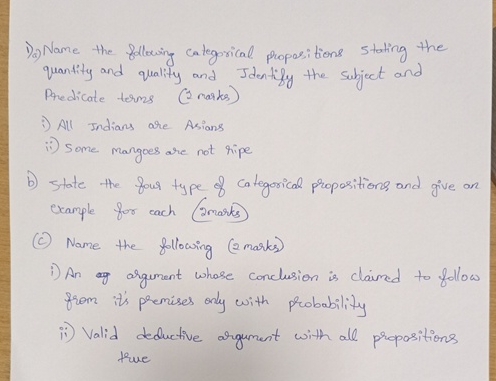 1)a) Name the following categorical propositions stating the
quantity and quality and Identify the Subject and
Predicate terms (2 marks)
i) All Indians are Asians
ii) Some mangoes are not ripe
b) State the four type of Categorical propositions and give an
example for each (2marks)
(c) Name the following (2 marks)
i) An argument whose conclusion is claimed to follow
from it's premises only with probability
ii) Valid deductive argument with all propositions
true